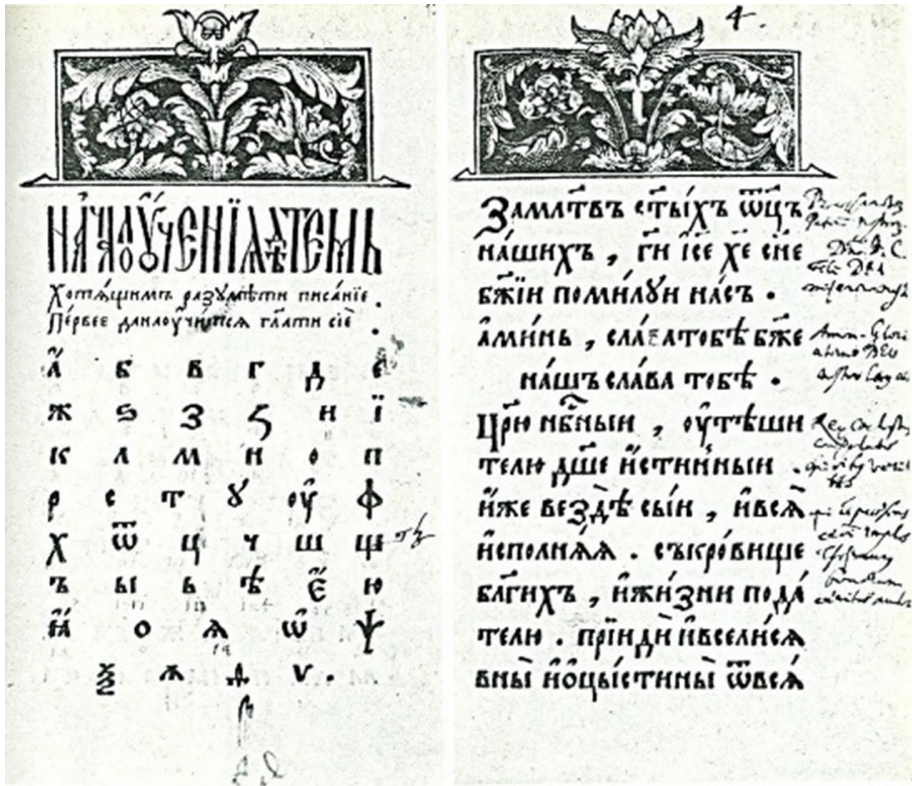 НАЧАЛО ОУЧЕНЇА ДѢТЕМЪ
Хотѧщимъ разꙋмѣти писанїе .
Первее даиаоучитсѧ гл҃ати сїе .
А б в г д е
ж ѕ з ꙁ и ї
к л м н о п
р с т ꙋ оу ф
х ѿ ц ч ш щ
ъ ы ь ѣ є ю
ꙗ о ѧ ѡ ѱ
ѯ ѫ ѵ .
4
Замл҃твъ ст҃ы́хъ ѿц҃ъ
на́шихъ , ги҃ і҆с҃е хе҃ сн҃е
бж҃їи поми́лꙋи на́съ .
а҆ми́нь , сла́ватобѣ бж҃е
на́шъ сла́ва тобѣ .
Цр҃ю нб҃ныи , оу҆тѣши
телю дш҃е и҆́стинныи .
и҆́же вездѣ̀ сы́и , и҆всѧ̀
и҆сполнѧ́ѧ . съкро́вище
бл҃гихъ , и҆жи́зни пода́
телю . прїидѝ и҆всели́сѧ
вны̀ и҆ѡ҆цы́стины̀ ѿвсѧ́